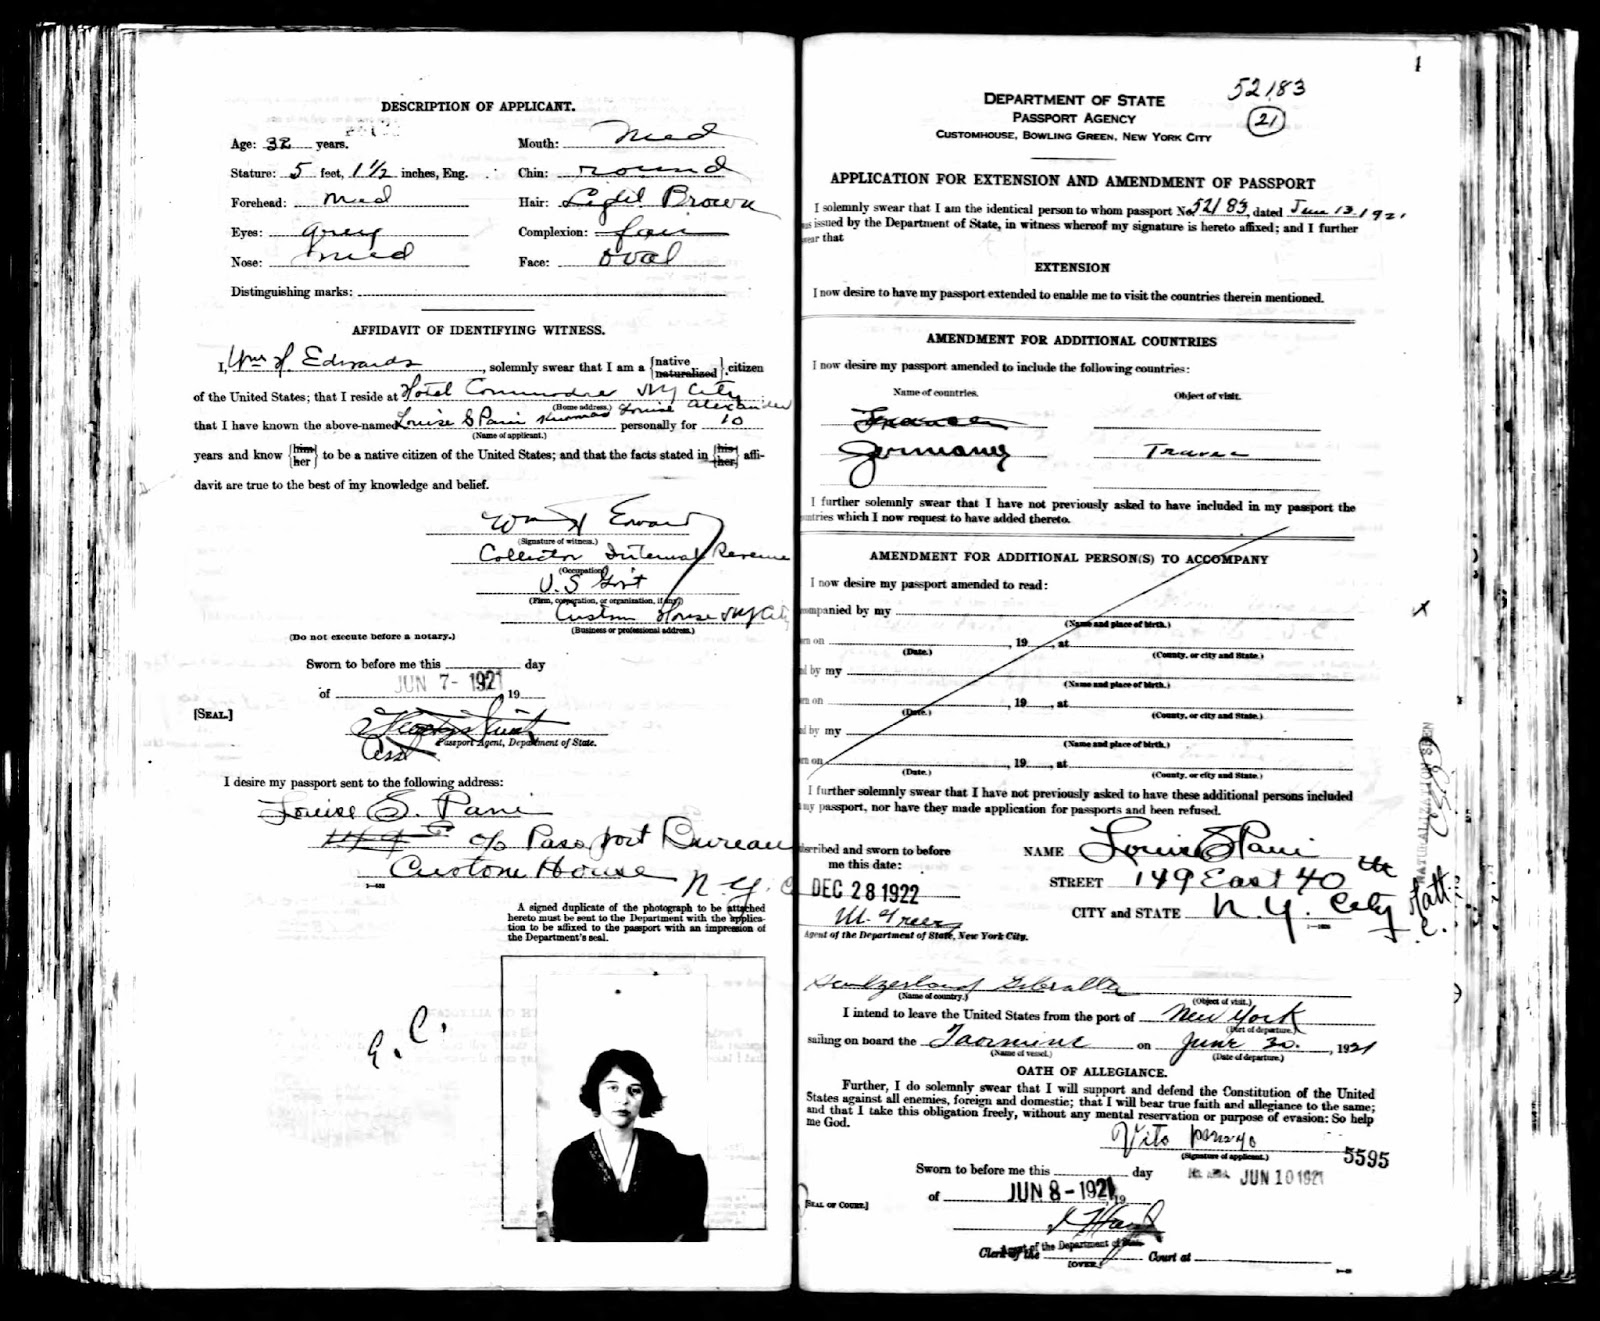 DESCRIPTION OF APPLICANT.
Age: 32 years.
Mouth: Med
Stature: 5 feet, 1 1/2 inches, Eng.
Chin: round
Forehead: Med
Hair: Light Brown
Eyes: grey
Complexion: fair
Nose: med
Face: oval
Distinguishing marks:
AFFIDAVIT OF IDENTIFYING WITNESS.
I, Wm H. Edwards, solemnly swear that I am a {native naturalized} citizen
of the United States; that I reside at Hotel Commodore NY City
(Home address.)
that I have known the above-named Louise S Pani Louise Alexander personally for 10
(Name of applicant.)
years and know {him her} to be a native citizen of the United States; and that the facts stated in {his her} affi-
davit are true to the best of my knowledge and belief.
Wm H Edwards
(Signature of witness.)
Collector Internal Revenue
(Occupation)
U.S Gov't
(Firm, corporation, or organization, if any.)
Custom House NY City
(Business or professional address.)
(Do not execute before a notary.)
Sworn to before me this day
of JUN 7 - 1921, 19
[SEAL.]
Asst
Passport Agent, Department of State.
I desire my passport sent to the following address:
Louise S. Pani
c/o Passport Bureau
Custom House N.Y.C
A signed duplicate of the photograph to be attached
hereto must be sent to the Department with the applica-
tion to be affixed to the passport with an impression of
the Department's seal.
E.C.
1
52183
21
DEPARTMENT OF STATE
PASSPORT AGENCY
CUSTOMHOUSE, BOWLING GREEN, NEW YORK CITY
APPLICATION FOR EXTENSION AND AMENDMENT OF PASSPORT
I solemnly swear that I am the identical person to whom passport No. 52183, dated June 13, 1921,
as issued by the Department of State, in witness whereof my signature is hereto affixed; and I further
wear that
EXTENSION
I now desire to have my passport extended to enable me to visit the countries therein mentioned.
AMENDMENT FOR ADDITIONAL COUNTRIES
I now desire my passport amended to include the following countries:
Name of countries.
Object of visit.
France
Germany
Travel
I further solemnly swear that I have not previously asked to have included in my passport the
ntries which I now request to have added thereto.
AMENDMENT FOR ADDITIONAL PERSON(S) TO ACCOMPANY
I now desire my passport amended to read:
ompanied by my
(Name and place of birth.)
rn on , 19 , at
(Date.)
(County, or city and State.)
d by my
(Name and place of birth.)
rn on , 19 , at
(Date.)
(County, or city and State.)
d by my
(Name and place of birth.)
rn on , 19 , at
(Date.)
(County, or city and State.)
I further solemnly swear that I have not previously asked to have these additional persons included
my passport, nor have they made application for passports and been refused.
scribed and sworn to before
me this date:
DEC 28 1922
Agent of the Department of State, New York City.
NAME Louise S Pani
STREET 149 East 40th
CITY and STATE N.Y. City
NATURALIZATION SEEN
X
Switzerland Gibraltar
(Name of country.)
(Object of visit.)
I intend to leave the United States from the port of New York
(Port of departure.)
sailing on board the Taormine on June 30, 1921
(Name of vessel.)
(Date of departure.)
OATH OF ALLEGIANCE.
Further, I do solemnly swear that I will support and defend the Constitution of the United
States against all enemies, foreign and domestic; that I will bear true faith and allegiance to the same;
and that I take this obligation freely, without any mental reservation or purpose of evasion: So help
me God.
Vito
(Signature of applicant.)
5595
Sworn to before me this day
JUN 10 1921
of JUN 8 - 1921, 19
[SEAL OF COURT.]
Agent of the Department of State
Clerk of the Court at
[OVER.]